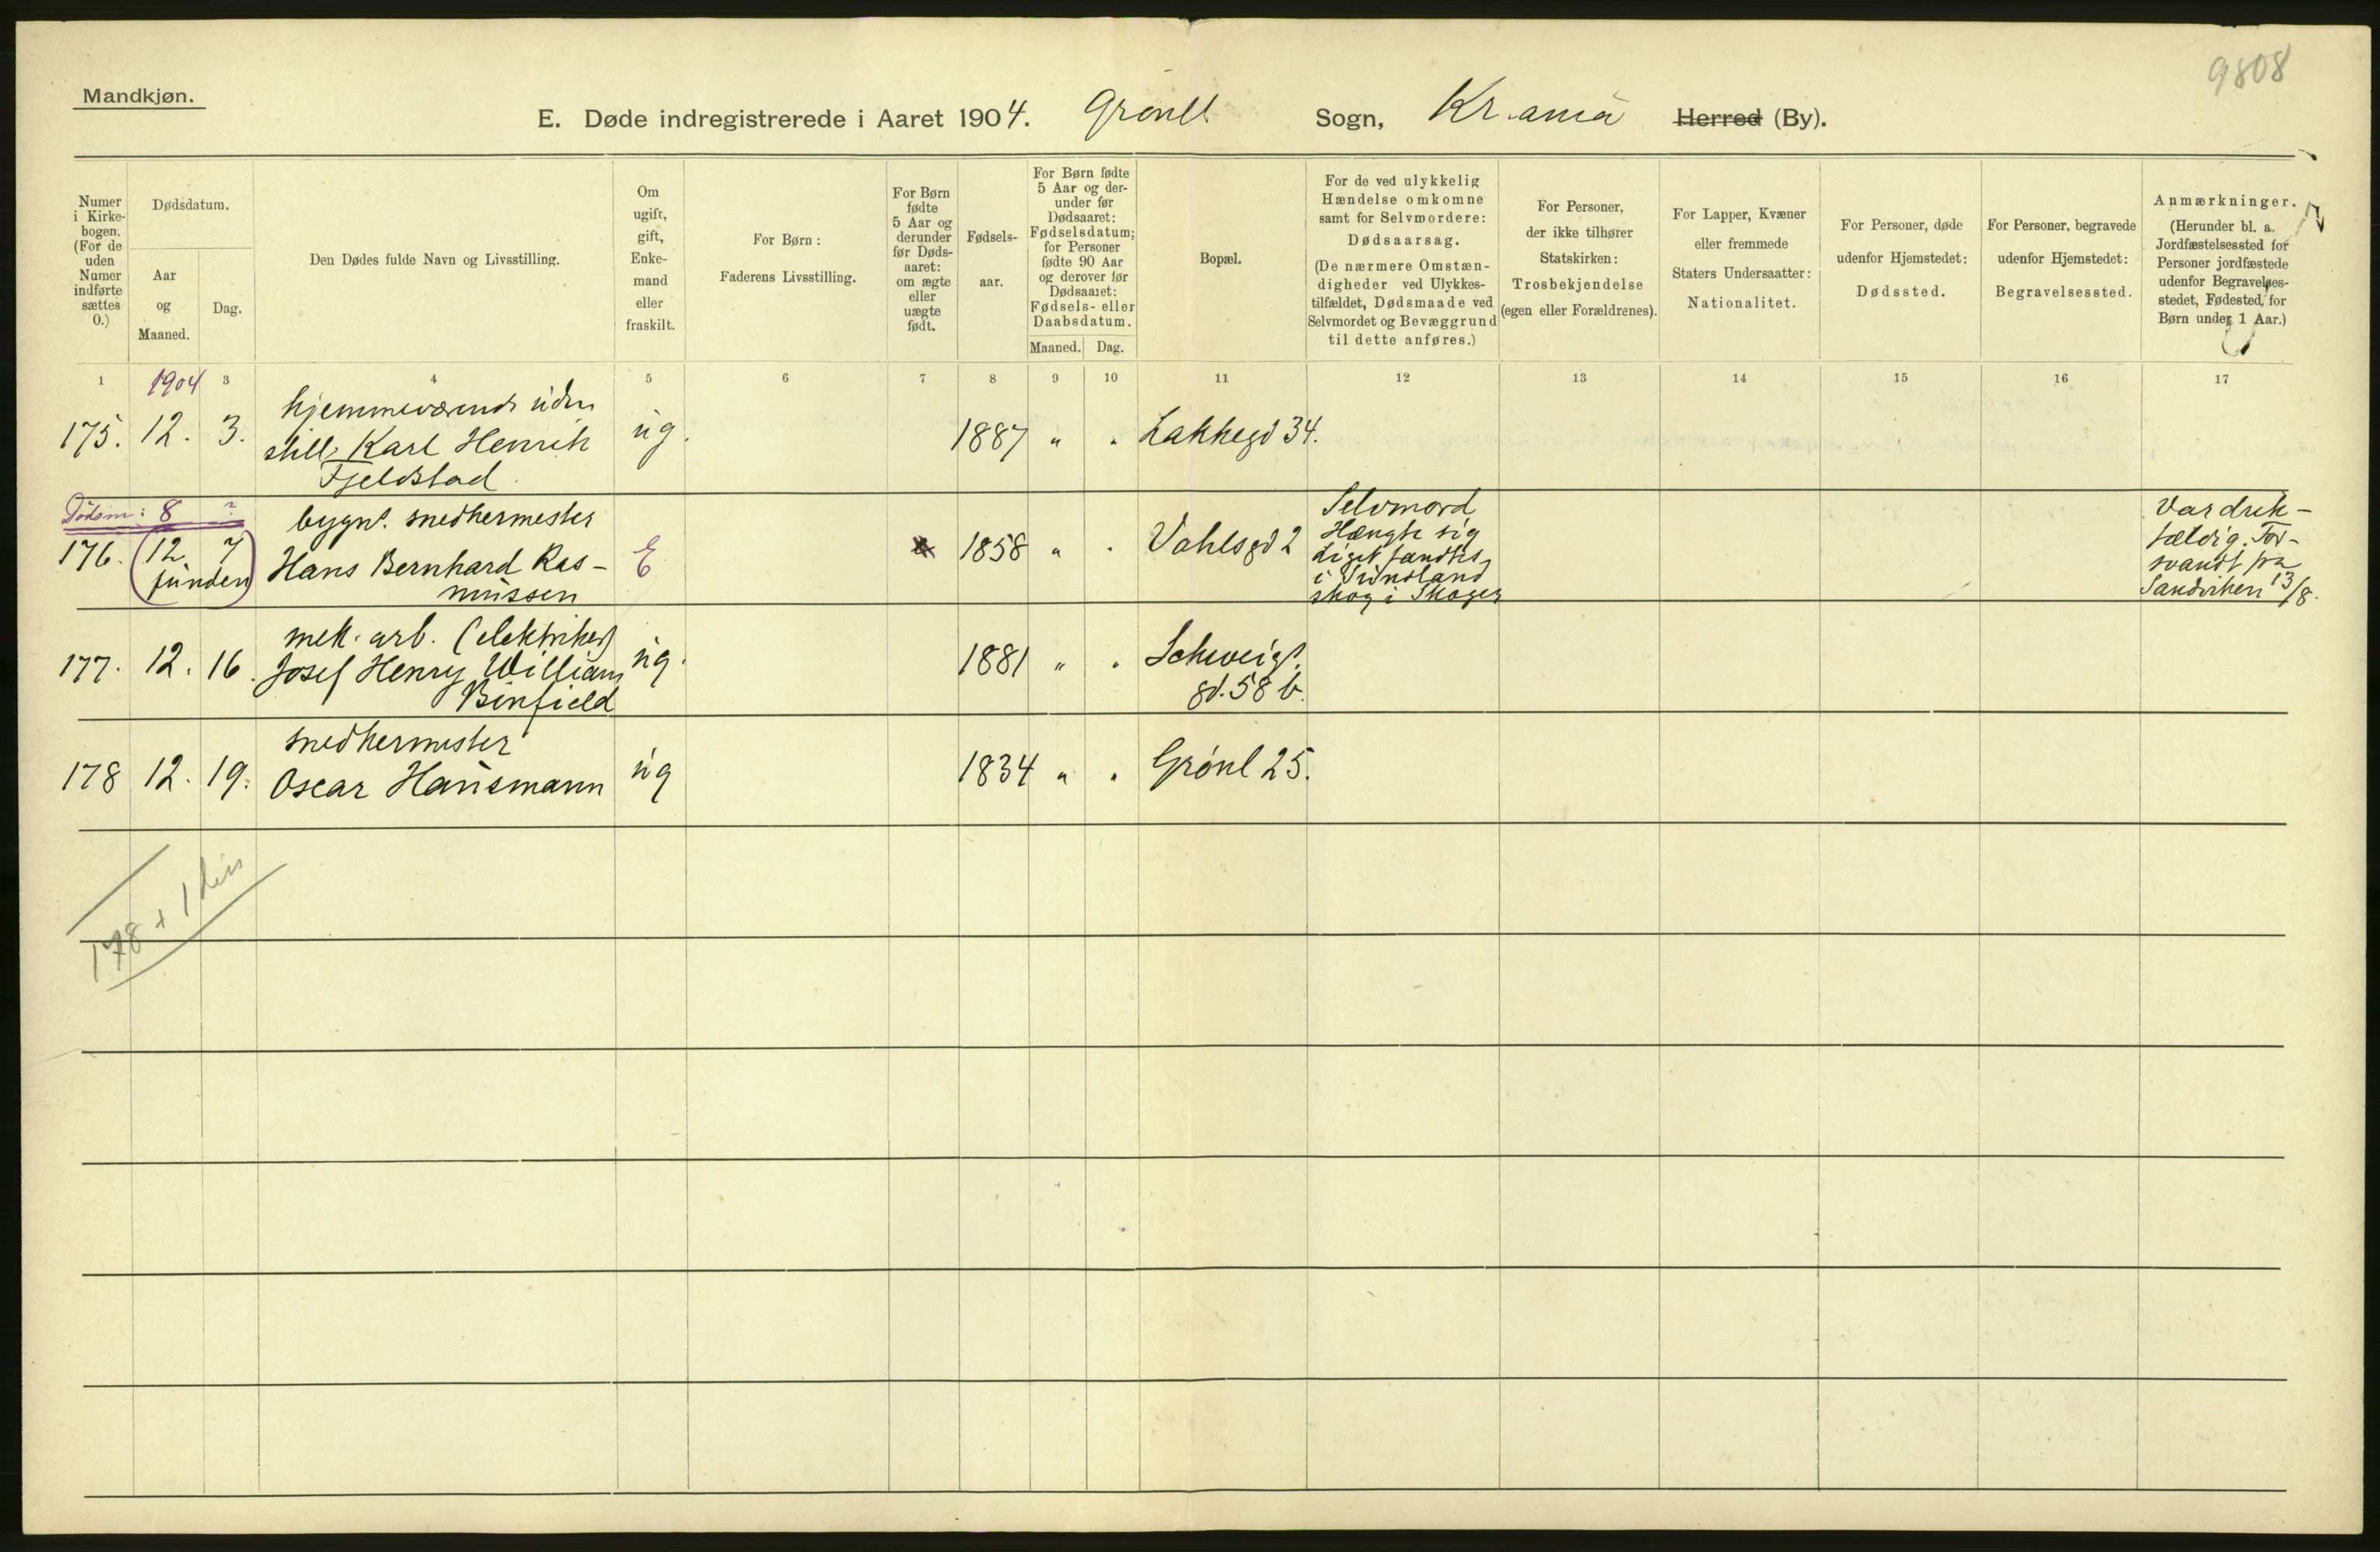 9808
Mandkjøn.
E. Døde indregistrerede i Aaret 1904. Grønl Sogn, Kr.ania Herred (By).
Numer
i Kirke-
bogen.
(For de
uden
Numer
indførte
sættes
0.)
Dødsdatum.
Aar
og
Maaned.
Dag.
Den Dødes fulde Navn og Livsstilling.
Om
ugift,
gift,
Enke-
mand
eller
fraskilt.
For Børn:
Faderens Livsstilling.
For Børn
fødte
5 Aar og
derunder
før Døds-
aaret:
om ægte
eller
uægte
født.
Fødsels-
aar.
For Børn fødte
5 Aar og der-
under før
Dødsaaret:
Fødselsdatum;
for Personer
fødte 90 Aar
og derover før
Dødsaaret:
Fødsels- eller
Daabsdatum.
Maaned. Dag.
Bopæl.
For de ved ulykkelig
Hændelse omkomne
samt for Selvmordere:
Dødsaarsag.
(De nærmere Omstæn-
digheder ved Ulykkes-
tilfældet, Dødsmaade ved
Selvmordet og Bevæggrund
til dette anføres.)
For Personer,
der ikke tilhører
Statskirken:
Trosbekjendelse
(egen eller Forældrenes).
For Lapper, Kvæner
eller fremmede
Staters Undersaatter:
Nationalitet.
For Personer, døde
udenfor Hjemstedet:
Dødssted.
For Personer, begravede
udenfor Hjemstedet:
Begravelsessted.
Anmærkninger.
(Herunder bl. a.
Jordfæstelsessted for
Personer jordfæstede
udenfor Begravelses-
stedet, Fødested, for
Børn under 1 Aar.)
1 1904 3 4 5 6 7 8 9 10 11 12 13 14 15 16 17
hjemmeværende uden
175. 12. 3. still. Karl Henrik ug. 1887 " " Lakkegd 34.
Fjeldstad
Dødsm: 8 ?
176. (12 7
funden)
bygn. snedkermester
Hans Bernhard Ras-
mussen
E
1858 " "
Vahlsgd 2
Selvmord
Hængte sig
Liget fandtes
i Sundland
skog i Skoger
Var drik-
fældig. For-
svandt fra
Sandviken 13/8.
mek. arb. (elektriker)
177. 12. 16. Josef Henry William ug. 1881 " " Schweigs.
Binfield gd. 58 b.
snedkermester
178 12. 19. Oscar Hansmann ug 1834 " " Grønl 25.
178 + 1